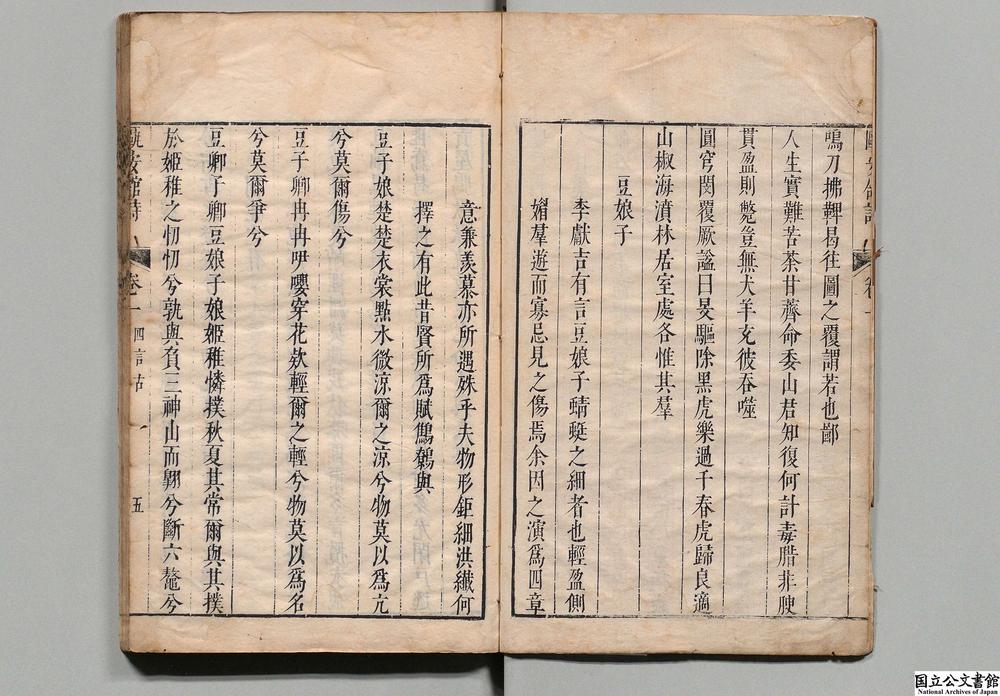 鳴刀拂鞞曷往圖之覆謂若也鄙
人生實難苦荼甘薺命委山君知復何計毒腊非腴
貫盈則斃豈無犬羊充彼吞噬
圓官閔覆厥謐曰旻驅除黑虎樂過千春虎歸良適
山椒海濆林居室處各惟其羣
豆娘子
李獻吉有言豆娘子蜻蜓之細者也輕盈側
媚羣遊而寡忌見之傷焉余因之演爲四章
意兼羨慕亦所遇殊乎夫物形鉅細洪纖何
擇之有此昔賢所爲賦鷦鷯與
豆子娘楚楚衣裳點水微涼爾之涼兮物莫以爲亢
兮莫爾傷兮
豆子卿冉冉吚嚶穿花欸輕爾之輕兮物莫以爲名
兮莫爾爭兮
豆卿子卿豆娘子娘姬稚憐撲秋夏其常爾與其撲
於姬稚之忉忉兮孰與負三神山而翺兮斷六鼇兮
甔㲄館詩
卷一
四言古
五